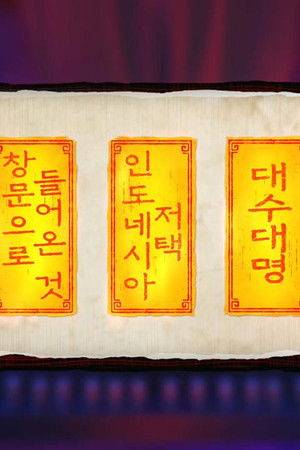 창문으로
들어온 것
인도네시아
저택
대수대명